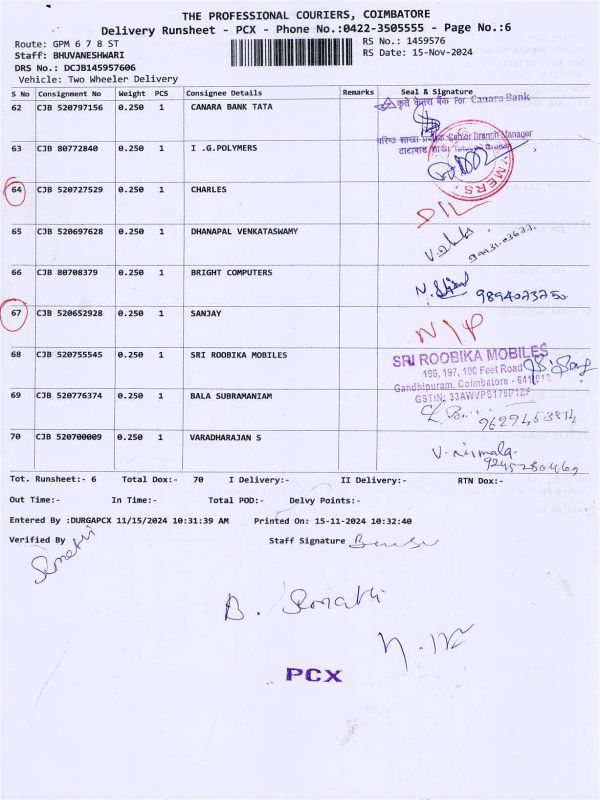 THE PROFESSIONAL COURIERS, COIMBATORE
Delivery Runsheet - PCX - Phone No.:0422-3505555 - Page No.:6
Route: GPM 6 7 8 ST
RS No.: 1459576
Staff: BHUVANESHWARI
RS Date: 15-Nov-2024
DRS No.: DCJB145957606
Vehicle: Two Wheeler Delivery
S No Consignment No Weight PCS Consignee Details Remarks Seal & Signature
62 CJB 520797156 0.250 1 CANARA BANK TATA
कृते केनरा बैंक For Canara Bank
वरिष्ठ शाखा Senior Branch Manager
63 CJB 80772840 0.250 1 I .G.POLYMERS
YMERS
64 CJB 520727529 0.250 1 CHARLES
D/L
65 CJB 520697628 0.250 1 DHANAPAL VENKATASWAMY
66 CJB 80708379 0.250 1 BRIGHT COMPUTERS
9894023250
67 CJB 520652928 0.250 1 SANJAY
N/P
68 CJB 520755545 0.250 1 SRI ROOBIKA MOBILES
SRI ROOBIKA MOBILES
196, 197, 100 Feet Road
Gandhipuram, Coimbatore - 641 012.
69 CJB 520776374 0.250 1 BALA SUBRAMANIAM
70 CJB 520700009 0.250 1 VARADHARAJAN S
V. Nirmala
Tot. Runsheet:- 6 Total Dox:- 70 I Delivery:- II Delivery:- RTN Dox:-
Out Time:- In Time:- Total POD:- Delvy Points:-
Entered By :DURGAPCX 11/15/2024 10:31:39 AM Printed On: 15-11-2024 10:32:40
Verified By Staff Signature
PCX